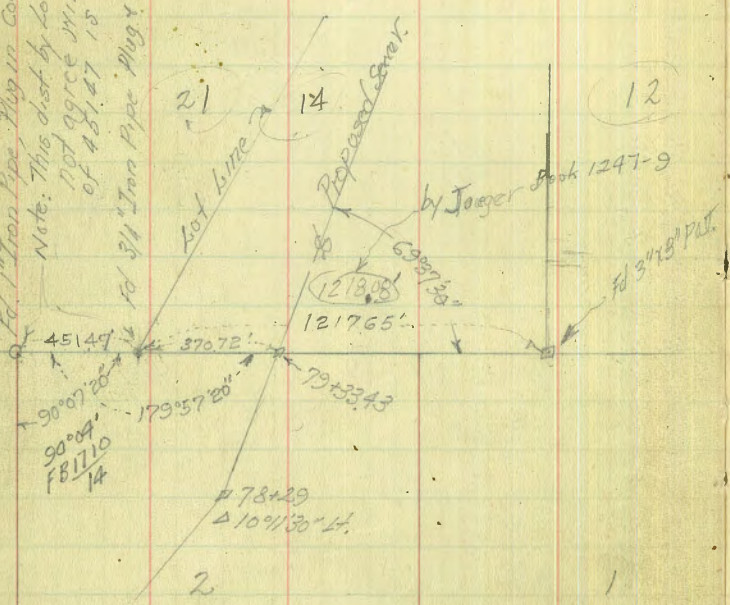 Fd. 1" Iron Pipe, Plug in Co
Note: This dist by Lo
not agree wi
of 451.47 is
Fd 3/4" Iron Pipe Plug
21
14
12
Lot Line
Proposed Sewer
by Jaeger Book 1247-9
69°37'30"
1218.08'
1217.65'
Fd 3"x3" P.I.
451.47'
370.72'
90°07'20"
179°57'20"
79+33.43
90°04'
FB1710
14
78+29
Δ 10°11'30" Lt.
2
1